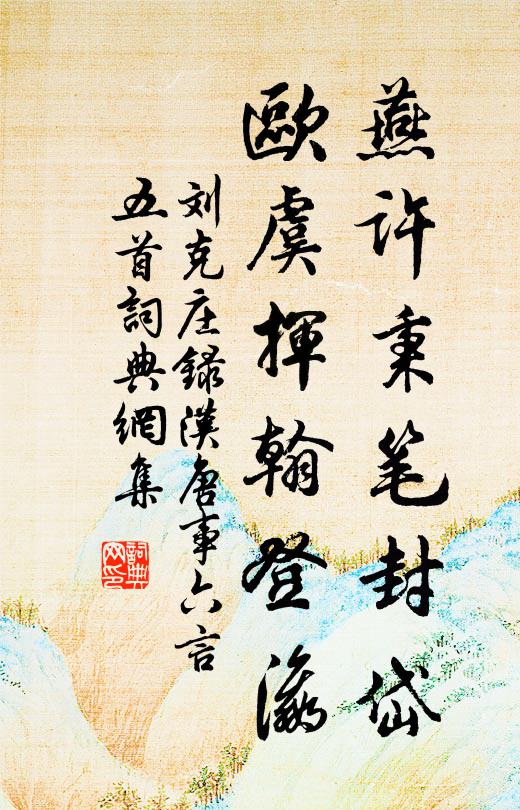 燕许秉笔封岱
歐虞揮翰登瀛
刘克庄録漢唐事六言
五首詞典網集
詞典
网印